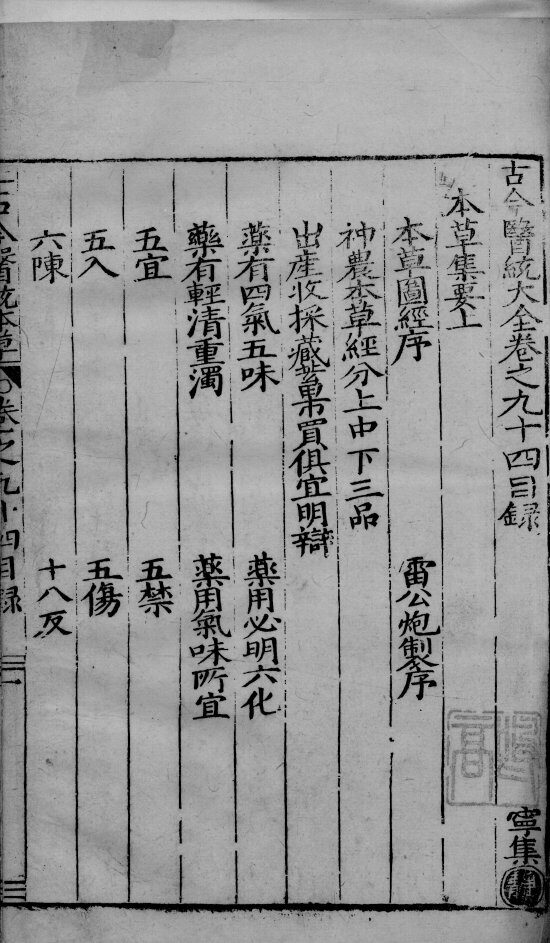 古今醫統大全卷之九十四目録
寧集
本草集要上
本草圖經序 雷公炮製序
神農本草經分上中下三品
出產收採藏蓄貨買俱宜明辯
藥有四氣五味 藥用必明六化
藥有輕清重濁 藥用氣味所宜
五宜 五禁
五入 五傷
六陳 十八反
古今醫統本草 卷之九十四目録 一